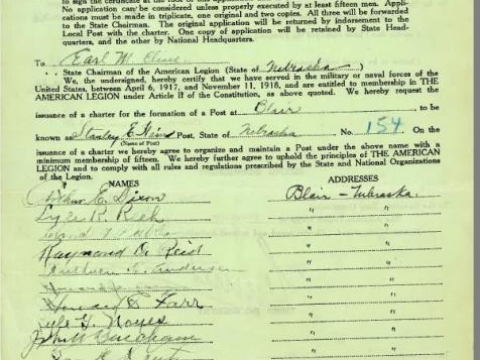 No application can be considered unless properly executed by at least fifteen men. Appli-
cations must be made in triplicate, one original and two copies. All three will be forwarded
to the State Chairman. The original application will be returned by indorsement to the
Local Post with the charter. One copy of application will be retained by State Head-
quarters, and the other by National Headquarters.
To Earl M. Cline
State Chairman of the American Legion (State of Nebraska)
We, the undersigned, hereby certify that we have served in the military or naval forces of the
United States, between April 6, 1917, and November 11, 1918, and are entitled to membership in THE
AMERICAN LEGION under Article II of the Constitution, as above quoted. We hereby request the
issuance of a charter for the formation of a Post at Blair to be
known as Stanley E. Post, State of Nebraska No. 154 On the
(Name of Post)
issuance of this charter we hereby agree to organize and maintain a Post under the above name with a
minimum membership of fifteen. We hereby further agree to uphold the principles of THE AMERICAN
LEGION and to comply with all rules and regulations prescribed by the State and National Organizations
of the Legion.
NAMES ADDRESSES
E. Dixon Blair - Nebraska
Lyle R. Rich "
"
Raymond O. Reid "
Anderson "
"
Howard D. Farr "
Lyle G. Noyes "
"